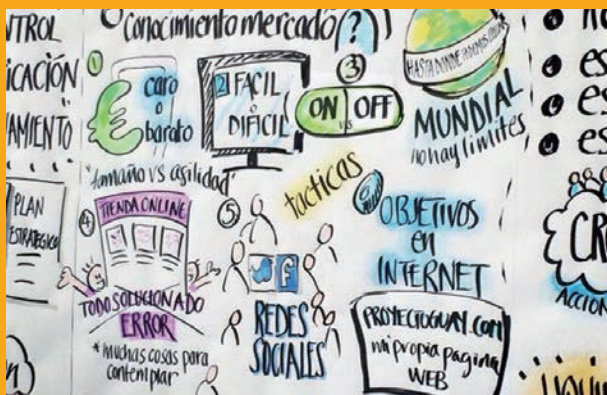 NTROL
ICACIÓN
AMIENTO
PLAN
ESTRATEGICO
Conocimiento mercado ?
1
caro
o
barato
€
2 FACIL
o
DIFÍCIL
3
ON VS OFF
HASTA DONDE PODEMOS LLEGAR
MUNDIAL
no hay limites
*tamaño vs agilidad*
tacticas
4
TIENDA ONLINE
TODO SOLUCIONADO
ERROR
*muchas cosas para
contemplar
5
f
REDES
SOCIALES
OBJETIVOS
en
INTERNET
PROYECTOGUAY.COM
mi propia pagina
WEB
es
es
es
CR
ACCION